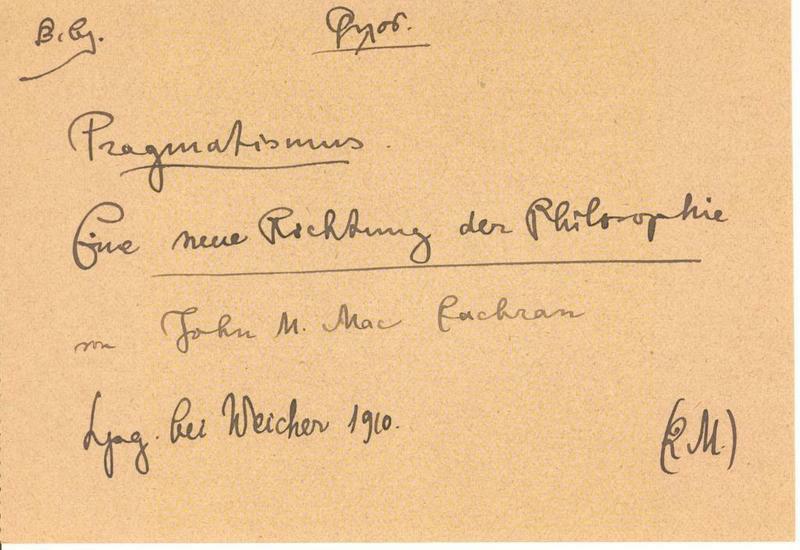 Pragmatismus.
Eine neue Richtung der Philosophie
von John M. Mac Eachran
Lpzg. bei Weicher 1910. (2 M.)